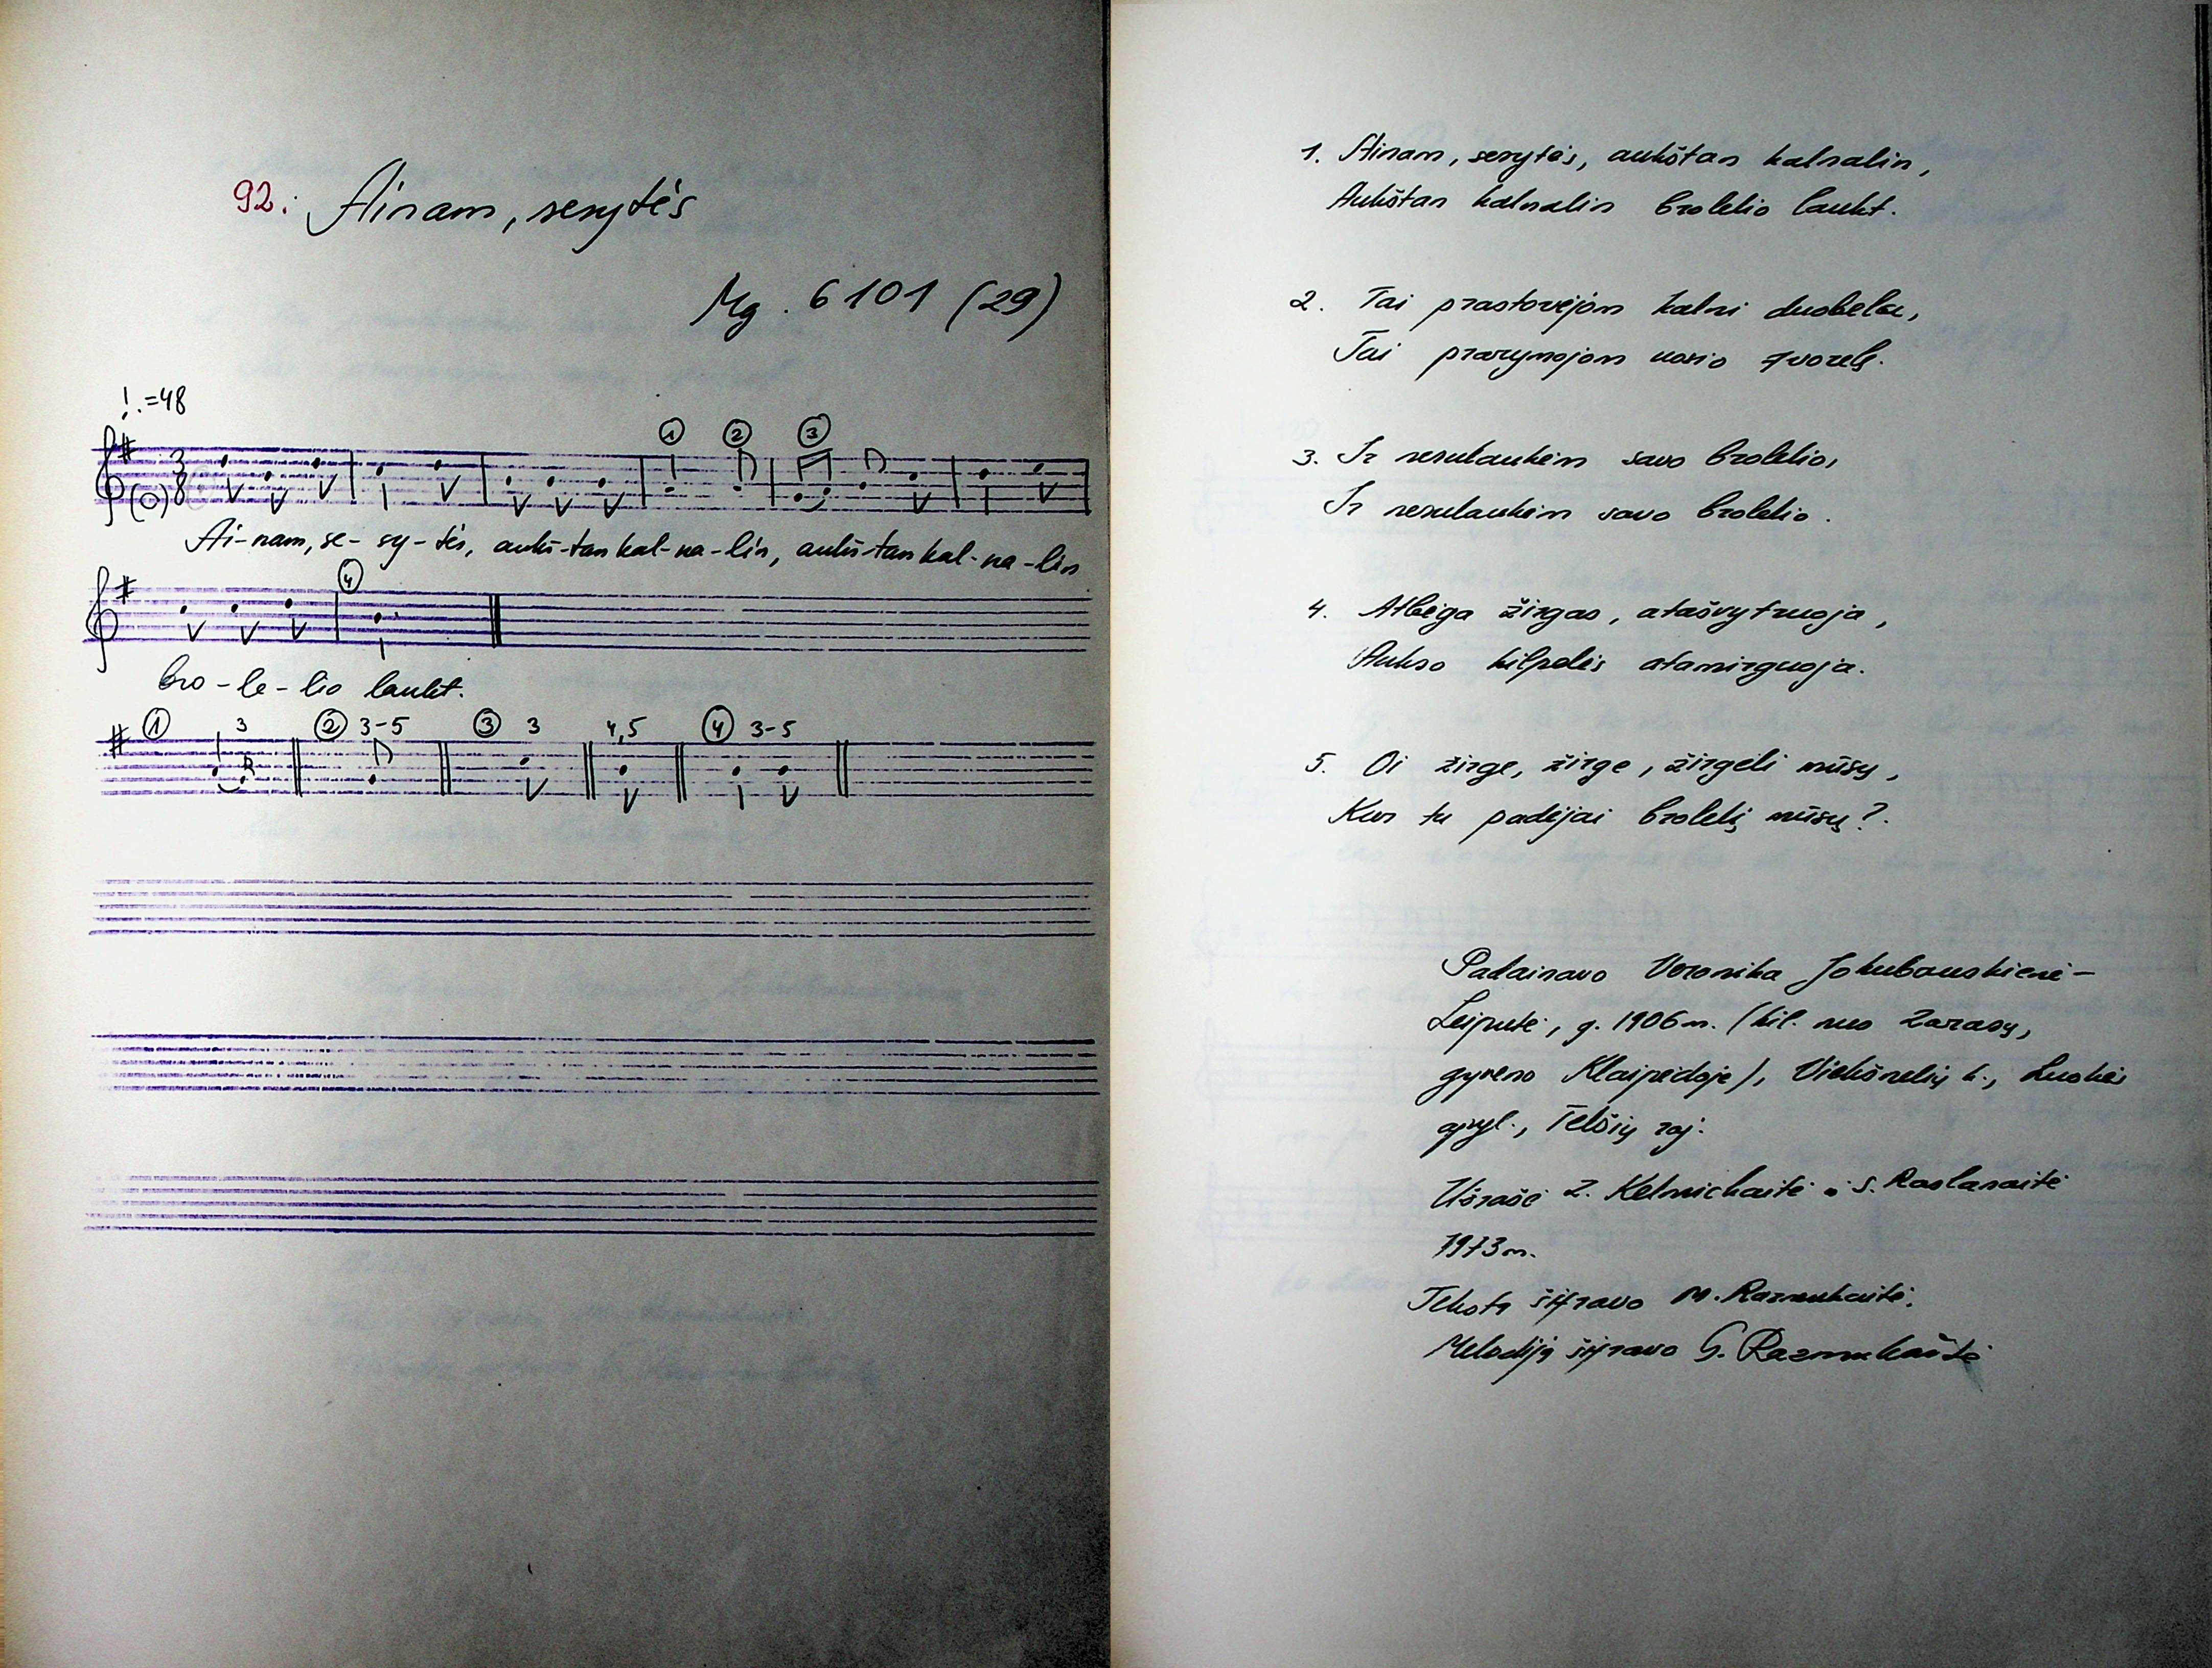 92. Ainam, sesytės
Mg. 6101 (29)
♩. = 48
① ② ③
Ai-nam, se-sy-tės, aukš-tan kal-na-lin, aukš-tan kal-na-lin
④
bro-le-lio laukt.
① 3 ② 3-5 ③ 3 4,5 ④ 3-5
1. Ainam, sesytės, aukštan kalnalin,
Aukštan kalnalin brolelio laukt.
2. Tai prastovėjom kalni duobelę,
Tai pravymojom uosio tvorelę.
3. Ir nesulaukėm savo brolelio,
Ir nesulaukėm savo brolelio.
4. Atbėga žirgas, atašvytruoja,
Aukso kilpelės atamirguoja.
5. Oi žirge, žirge, žirgeli mūsų,
Kur tu padėjai brolelį mūsų?
Padainavo Veronika Jokubauskienė-
Leiputė, g. 1906 m. (kil. nuo Zarasų,
gyveno Klaipėdoje), Viekšnelių k., Luokės
apyl., Telšių raj.
Užrašė Z. Kelmickaitė ir S. Paslanaitė
1973 m.
Tekstą šifravo M. Razmukaitė.
Melodiją šifravo G. Razmukaitė